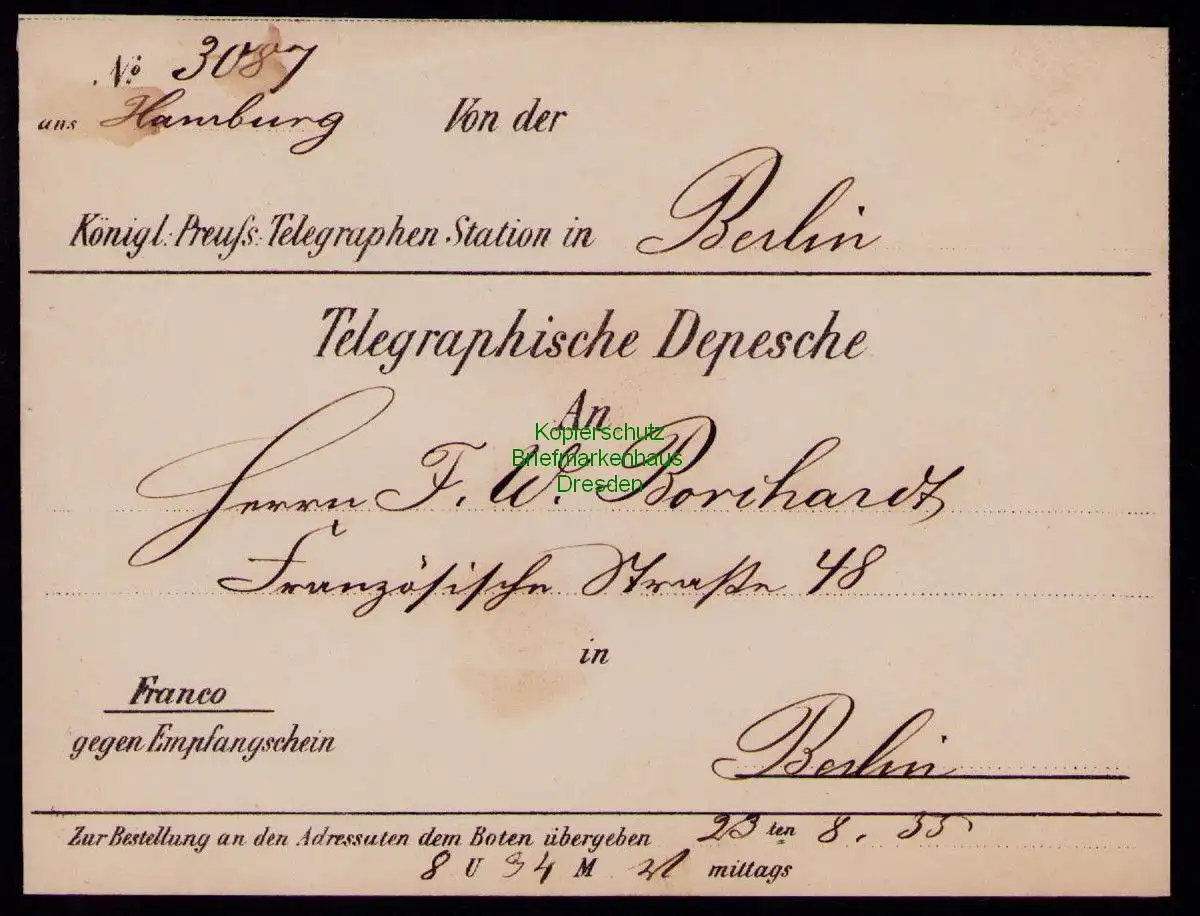 No 3087
aus Hamburg Von der
Königl: Preuſs: Telegraphen Station in Berlin
Telegraphische Depesche
An
Kopferschutz
Briefmarkenhaus
Dresden
Herrn F. W. Borchardt
Französische Straße 48
in
Franco
gegen Empfangschein
Berlin
Zur Bestellung an den Adressaten dem Boten übergeben 23 ten 8. 55
8 U 34 M mittags